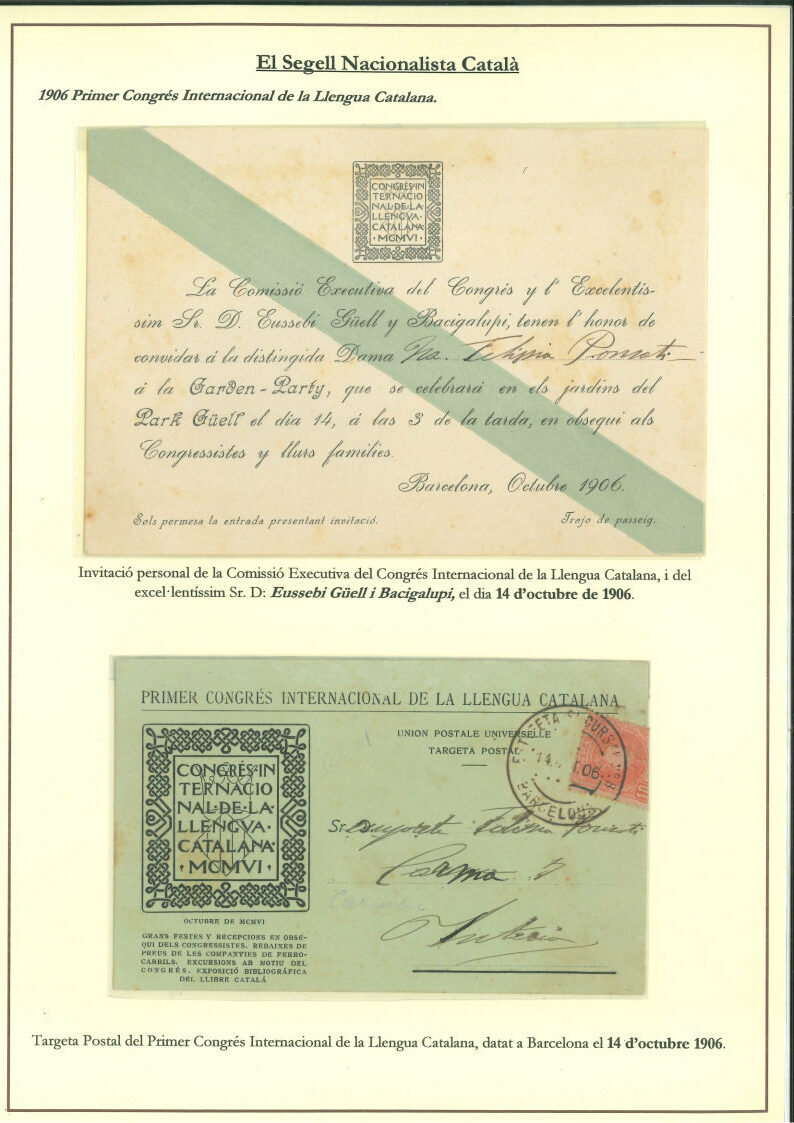 El Segell Nacionalista Català
1906 Primer Congrés Internacional de la Llengua Catalana.
CONGRÉS·IN
TERNACIO
NAL·DE·LA·
LLENGVA·
CATALANA·
·MCMVI·
La Comissió Executiva del Congrés y l' Excelentís-
sim Sr. D. Eussebi Güell y Bacigalupi, tenen l' honor de
convidar á la distingida Dama
á la Garden-Party, que se celebrará en els jardins del
Park Güell el dia 14, á las 3 de la tarda, en obsequi als
Congressistes y llurs families.
Barcelona, Octubre 1906.
Sols permesa la entrada presentant invitació.
Trajo de passeig.
Invitació personal de la Comissió Executiva del Congrés Internacional de la Llengua Catalana, i del
excel·lentíssim Sr. D: Eussebi Güell i Bacigalupi, el dia 14 d'octubre de 1906.
PRIMER CONGRÉS INTERNACIONAL DE LA LLENGUA CATALANA
UNION POSTALE UNIVERSELLE
TARGETA POSTAL
BARCELONA
CONGRÉS·IN
TERNACIO
NAL·DE·LA·
LLENGVA·
CATALANA·
·MCMVI·
Sr
OCTUBRE DE MCMVI
GRANS FESTES Y RECEPCIONS EN OBSE-
QUI DELS CONGRESSISTES. REBAIXES DE
PREUS DE LES COMPANYIES DE FERRO-
CARRILS. EXCURSIONS AB MOTIU DEL
CONGRÉS. EXPOSICIÓ BIBLIOGRÁFICA
DEL LLIBRE CATALÁ
Targeta Postal del Primer Congrés Internacional de la Llengua Catalana, datat a Barcelona el 14 d'octubre 1906.